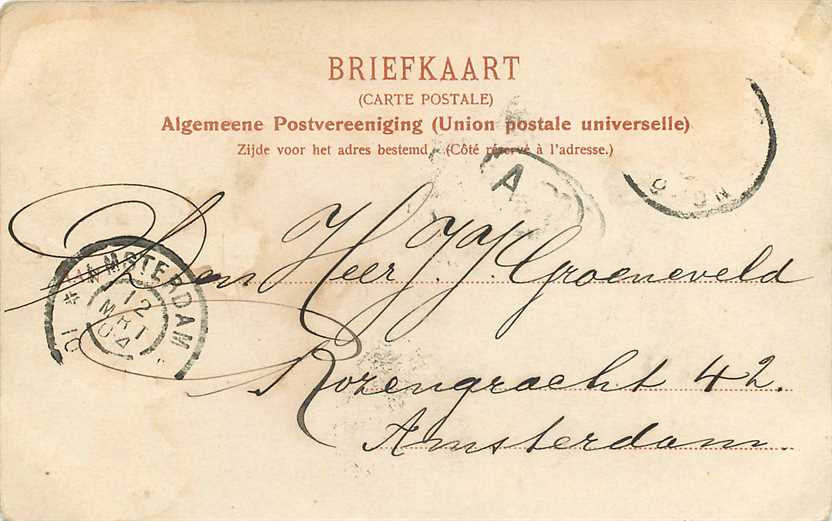 BRIEFKAART
(CARTE POSTALE)
Algemeene Postvereeniging (Union postale universelle)
Zijde voor het adres bestemd. (Côté réservé à l'adresse.)
A
Den Heer J. J. Groeneveld
Rozengracht 42.
Amsterdam.
AMSTERDAM
12
MRT
04